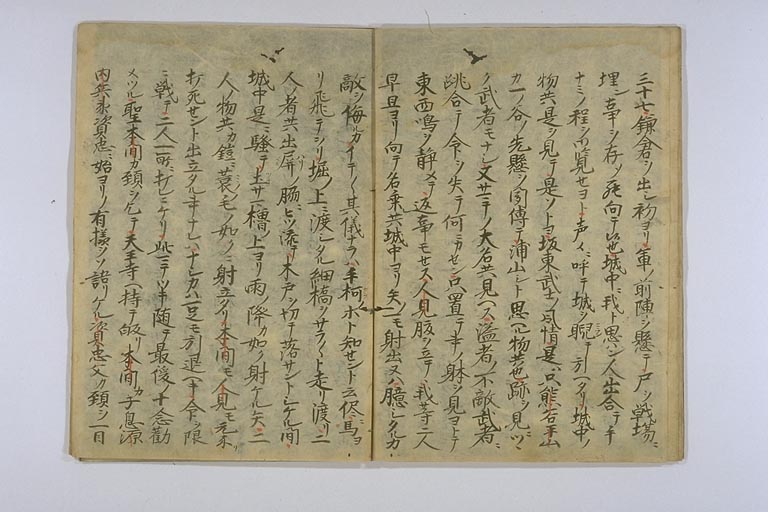 三十七鎌倉ヲ出シ初ヨリ軍ノ前陣ヲ懸テ尸ヲ戦場ニ
埋ン事ヲ存メ死向テ候也城中ニ我ト思ハン人出合テ手
ナミノ程ヲ御覧セヨト声々ニ呼テ城ヲ睨テ引ヘタリ城中ノ
物共是ヲ見テ是ソトヨ坂東武士ノ風情是ハ只熊谷平山
カ一ノ谷ノ先懸ヲ伝テ浦山シト思ヘル物共也跡ヲ見ルニツヽ
ク武者モナシ又サニテノ大名共見ヘス溢者ノ不敵武者ニ
跳合テ命ヲ失テ何カセン只置テ事ノ躰ヲ見ヨトテ
東西鳴ヲ静メテ返事モセス人見腹ヲ立テ我等二人
早旦ヨリ向テ名乗共城中ヨリ矢ノ一モ射出又ハ臆シタルカ
敵ヲ侮ルカイテ〱其儀ナラハ手柯ホト知セント云侭ニ馬ヨ
リ飛テヲリ堀ノ上ニ渡シタル細橋ヲサラ〱ト走リ渡リ二
人ノ者共出屏ノ脇ニヒツ添テ木戸ヲ切テ落サントシケル間
城中是ニ騒テ土サマ櫓ノ上ヨリ雨ノ降カ如ク射ケル矢二
人ノ物共カ鎧ニ蓑毛ノ如クニ射立タリ本間モ人見モ元来
打死セント出立タル事ナレハナシカハ一足モ引退ヘキ命ヲ限
ニ戦テ二人一所ニ打レニケリ此ニテツキ随テ最後ノ十念勧
メツル聖本間カ頚ヲ乞テ天王寺ヘ持テ帰リ本間カ子息源
内兵衛資忠ニ始ヨリノ有様ヲソ語リケル資忠父カ頚ヲ一目